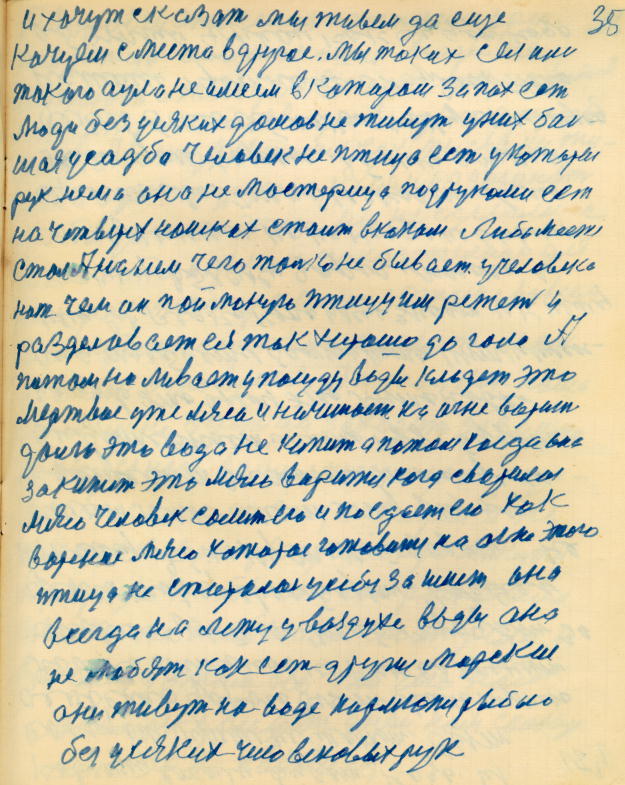 35
и хочут сказат мы живем да еще
качуем с места в другое. мы таких сел или
такого аула не имеем в катаром запах ест
люди без усяких домов не живут у них бал
шая усадба Человек не птица ест у катары
рук нема она не мастерица под руками ест
на четверех ношках стаит
стол чего толко не бывает у человека
нож чем он поймоную птицу им режет и
разделовает ея так хорошо до гола А
патом наливает у посуду воды кладет это
мертвае уже мяса и начинает на огне варит
долго эта вода не кипит а потом когда она
закипит это мясо варитжи кода сварился
мясо человек солит его и поедает его как
вареное мясо катарае готовити на огне этого
птица не старалас у себя за шист она
всегда на лету у воздухе воды она
не любят как ест други морские
они живут на воде рыбою
без усяких человековых рук